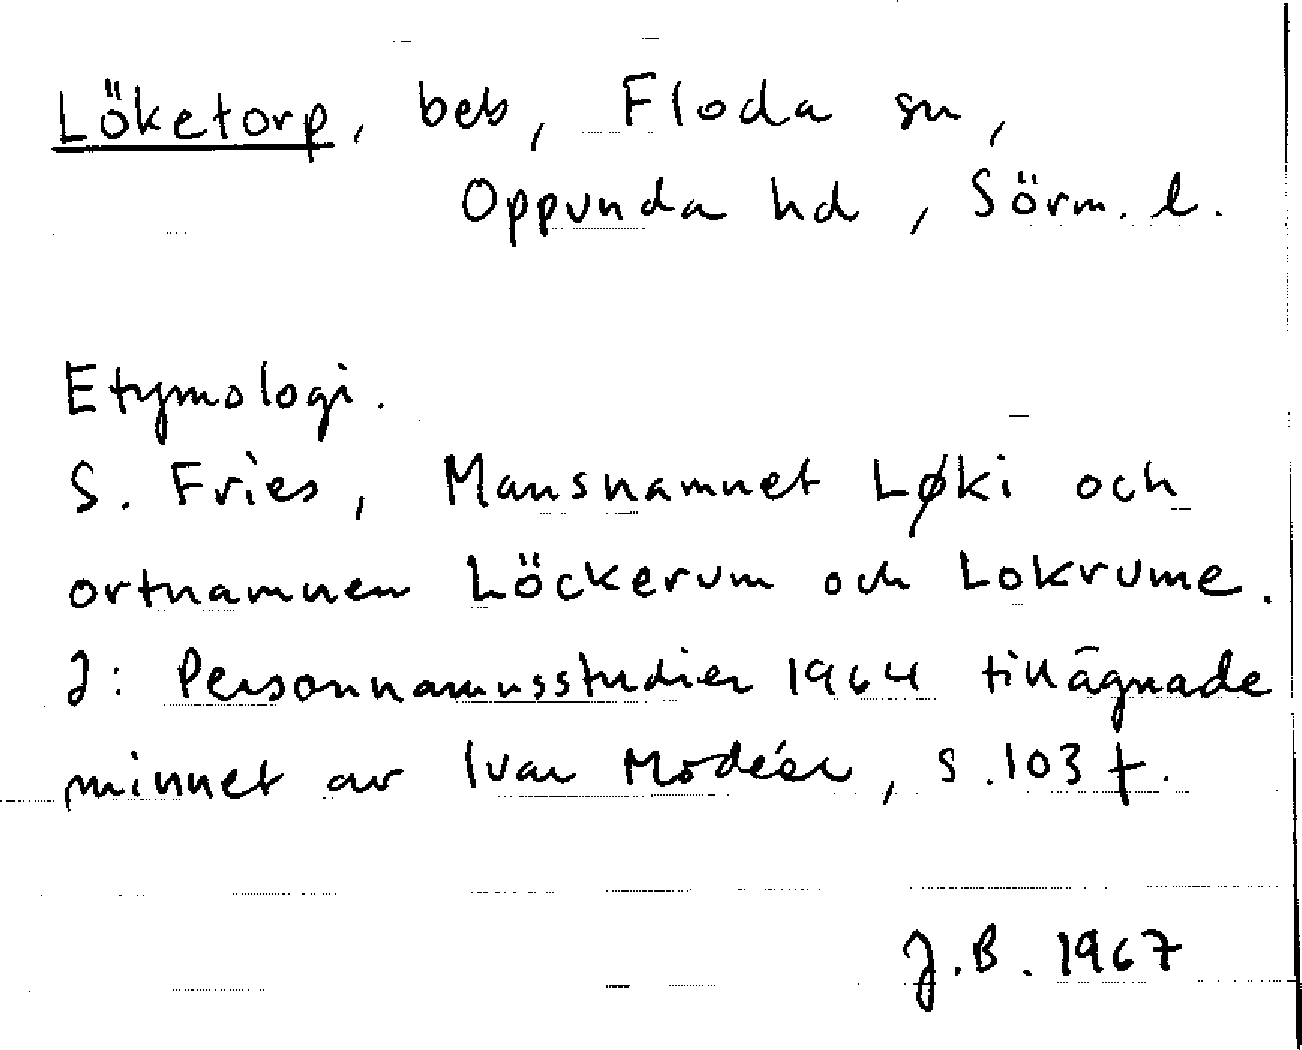 Löketorp, beb, Floda sn,
Oppunda hd, Sörm. l.
Etymologi.
S. Fries, Mansnamnet Løki och
ortnamnen Löckerum och Lokrume.
I: Personnamnsstudier 1964 tillägnade
minnet av Ivar Modéer, s. 103 f.
J.B. 1967